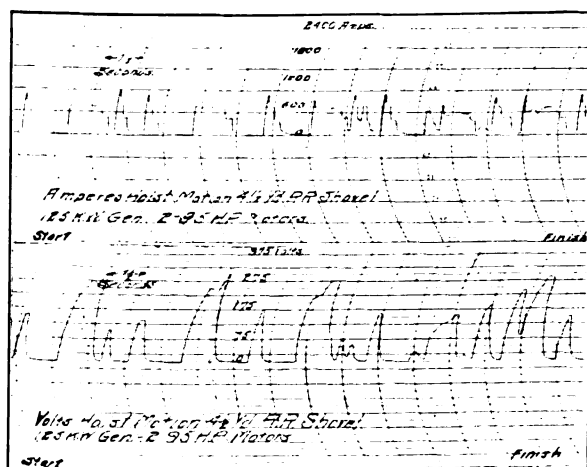 2400 Amps.
1800
1200
600
0
Seconds
Amperes Hoist Motion 4½ Yd. R.R. Shovel
125 KW Gen. 2-95 H.P. Motors
Start Finish
375 Volts
275
175
75
0
Seconds
Volts Hoist Motion 4½ Yd. R.R. Shovel
125 KW Gen.-2 95 H.P. Motors
Start Finish